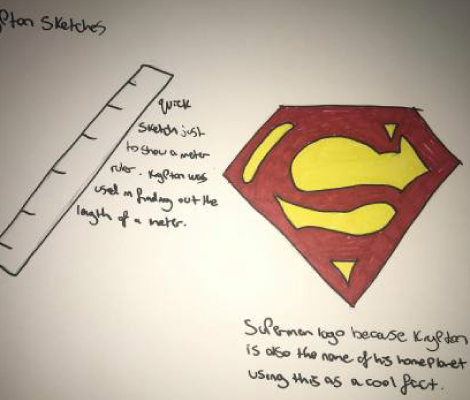 pton Sketches
Quick
Sketch just
to show a meter
ruler. Krypton was
used in finding out the
length of a meter.
Superman logo because Krypton
is also the name of his home planet
using this as a cool fact.